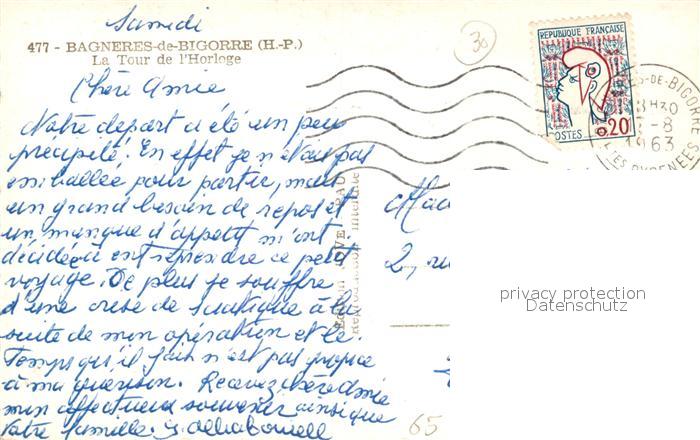 Samedi
477 - BAGNERES-de-BIGORRE (H.-P.)
La Tour de l'Horloge
30
REPUBLIQUE FRANÇAISE
POSTES 0.20
DE-BIGORRE
8H30
-8
1963
PYRENEES
Chère Amie
Notre départ a été un peu
précipité. En effet je n'étais pas
emballée pour partir, mais
un grand besoin de repos et
un manque d'appétit m'ont
décidée à entreprendre ce petit
voyage. De plus je souffre
d'une crise de sciatique à la
suite de mon opération et le
Temps qu'il fait n'est pas propice
à ma guérison. Recevez chère Amie
mon affectueux souvenir ainsi que
votre famille.
2, ru
Reproduction interdite
privacy protection
Datenschutz
65